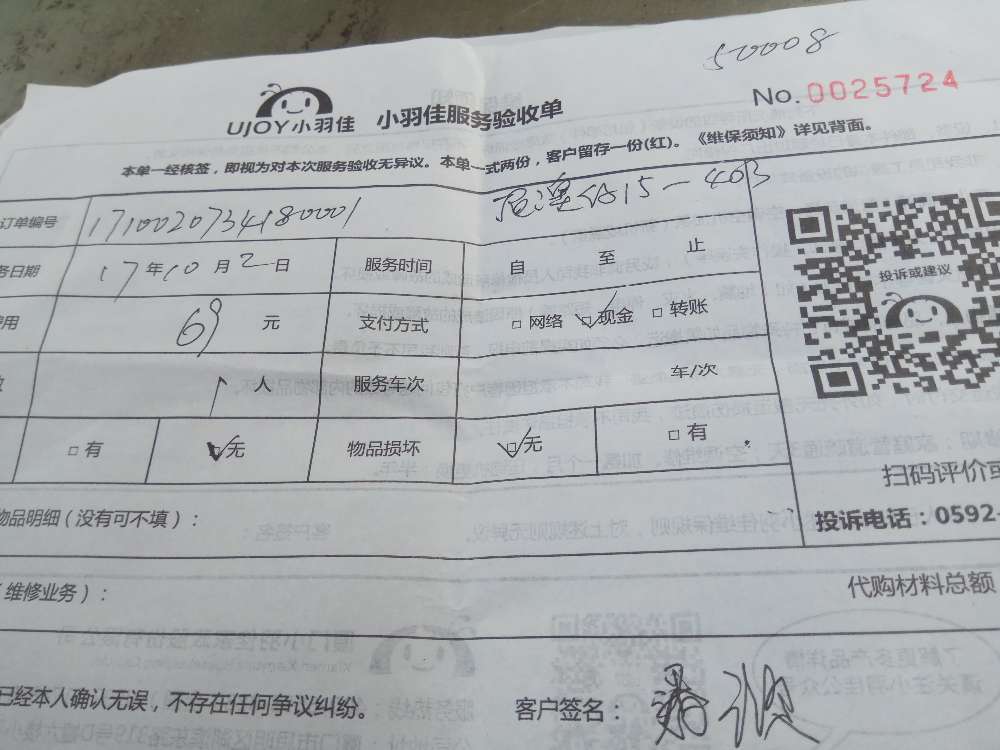 50008
No. 0025724
UJOY小羽佳 小羽佳服务验收单
本单一经核签，即视为对本次服务验收无异议。本单一式两份，客户留存一份(红)。《维保须知》详见背面。
订单编号 1710020734180001 15-403
务日期 17年10月2日 服务时间 自 至 止
投诉或建议
用 69 元 支付方式 □ 网络 ☑ 现金 □ 转账
1 人 服务车次 车/次
□ 有 ☑ 无 物品损坏 ☑ 无 □ 有
扫码评价或
物品明细（没有可不填）：
投诉电话：0592-
（维修业务）：
代购材料总额
已经本人确认无误，不存在任何争议纠纷。 客户签名：